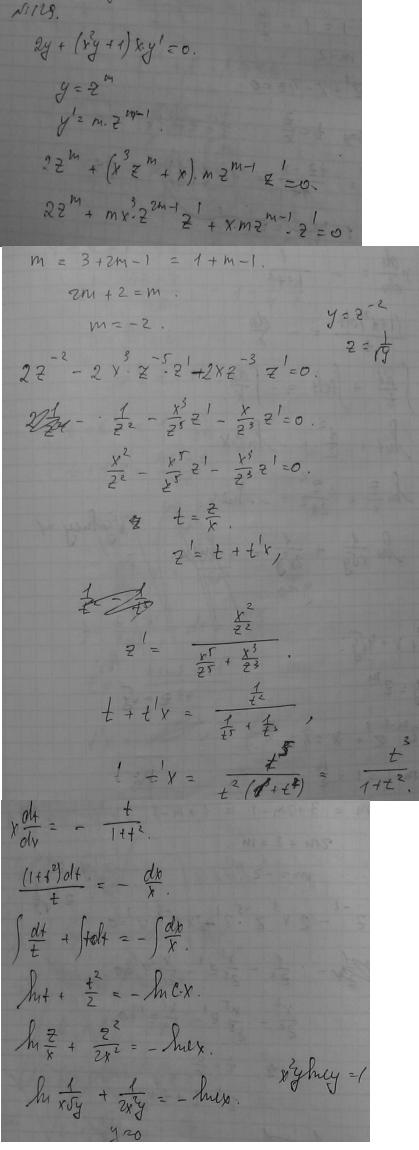 № 1129.
2y + (x²y+1) x·y' = 0.
y = z^m
y' = m·z^(m-1).
2z^m + (x³z^m + x)·m z^(m-1) z' = 0.
2z^m + mx³·z^(2m-1) z' + x·m z^(m-1)·z' = 0
m = 3+2m-1 = 1+m-1.
2m+2 = m.
m = -2.
y = z^(-2)
z = 1/√y
2z^(-2) - 2x³·z^(-5)·z' - 2xz^(-3) z' = 0.
1/z² - x³/z⁵ z' - x/z³ z' = 0.
x²/z² - x⁵/z⁵ z' - x³/z³ z' = 0.
t = z/x.
z' = t + t'x,
z' = (x²/z²) / (x⁵/z⁵ + x³/z³).
t + t'x = (1/t²) / (1/t⁵ + 1/t³),
t + t'x = t⁵ / (t²(1+t²)) = t³ / (1+t²).
x dt/dx = - t/(1+t²).
(1+t²)dt / t = - dx/x.
∫ dt/t + ∫ t dt = - ∫ dx/x.
ln t + t²/2 = - ln c·x.
ln z/x + z²/2x² = - ln cx.
ln 1/(x√y) + 1/(2x²y) = - ln cx.
x²y ln cy = 1
y = 0